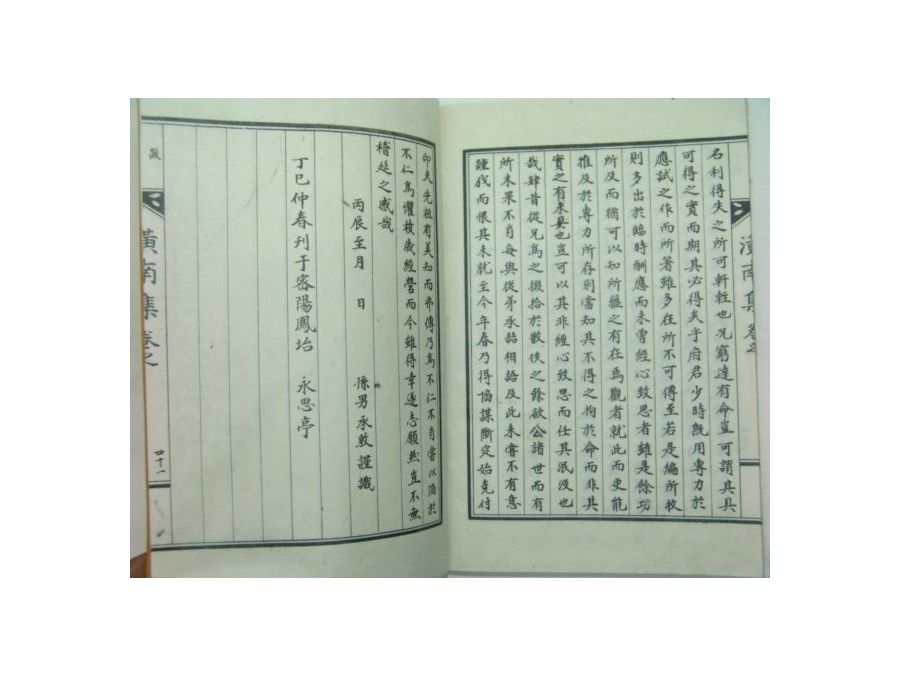 名利得失之所可軒輊也况窮達有命豈可謂其具
可得之實而期其必得矣乎府君少時旣用專力於
應試之作而所著雖多在所不可傳至若是編所收
則多出於臨時酬應而未曾經心致思者雖是餘功
所及而猶可以知所蘊之有在爲觀者就此而更能
推及於專力所存則當知其不得之拘於命而非其
實之有未具也豈可以其非經心致思而任其泯没也
哉肆昔從兄爲之掇拾於散佚之餘欲公諸世而有
所未果不肖每與從弟承喆相語及此未嘗不有意
踵成而恨其未就至今年春乃得協謀斷定始克付
潢南集 卷之
印夫先祖有美知而弗傳乃爲不仁不肖嘗以陷於
不仁爲懼枝歲經營而今雖得幸遂志願然豈不無
稽延之感哉
丙辰至月 日 孫男承敦謹識
丁巳仲春刊于密陽鳳坮 永思亭
潢南集 卷之
跋
四十一